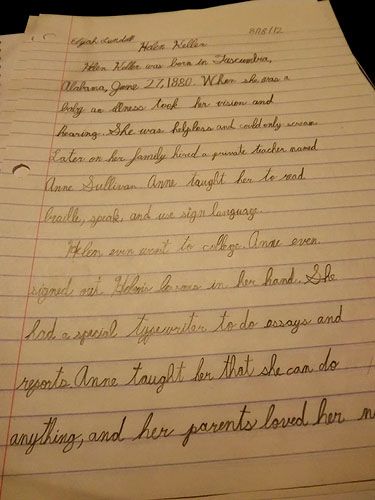 Elijah Lundell 8/28/12
Helen Keller
Helen Keller was born in Tuscumbia,
Alabama, June 27, 1880. When she was a
baby an illness took her vision and
hearing. She was helpless and could only scream.
Later on her family hired a private teacher named
Anne Sullivan. Anne taught her to read
braille, speak, and use sign language.
Helen even went to college. Anne even
signed out Helen's lessons in her hand. She
had a special typewriter to do essays and
reports. Anne taught her that she can do
anything, and her parents loved her